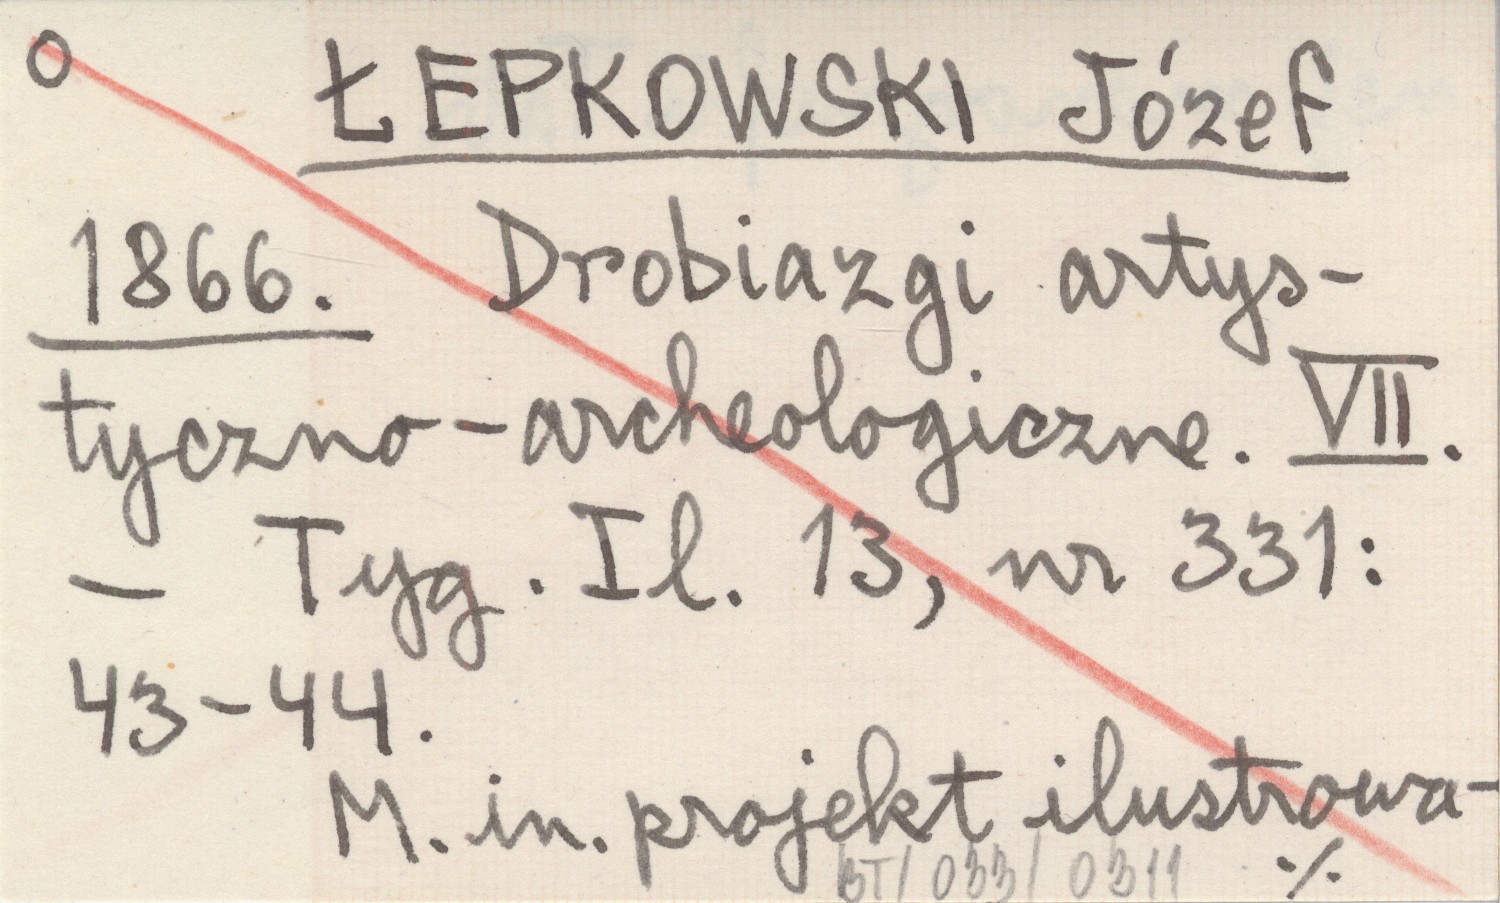 o ŁEPKOWSKI Józef
1866. Drobiazgi artys-
tyczno-archeologiczne. VII.
— Tyg. Il. 13, nr 331:
43-44.
M. in. projekt ilustrowa-
BT/033/0311 ./.